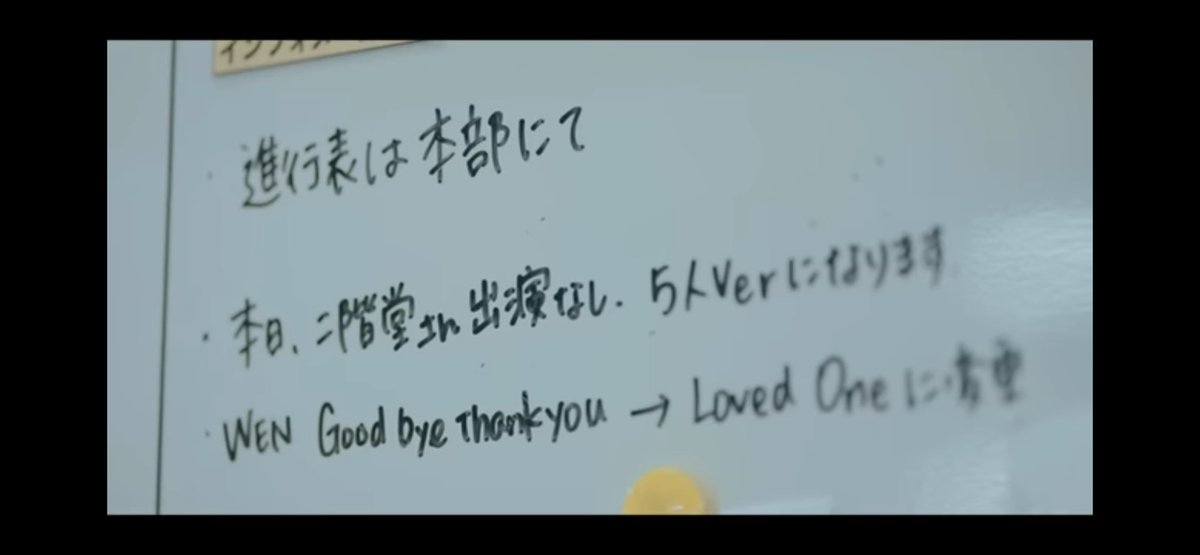 ・進行表は本部にて
・本日、二階堂さん出演なし. 5人Verになります
・WEN Good bye Thank you → Loved One に変更